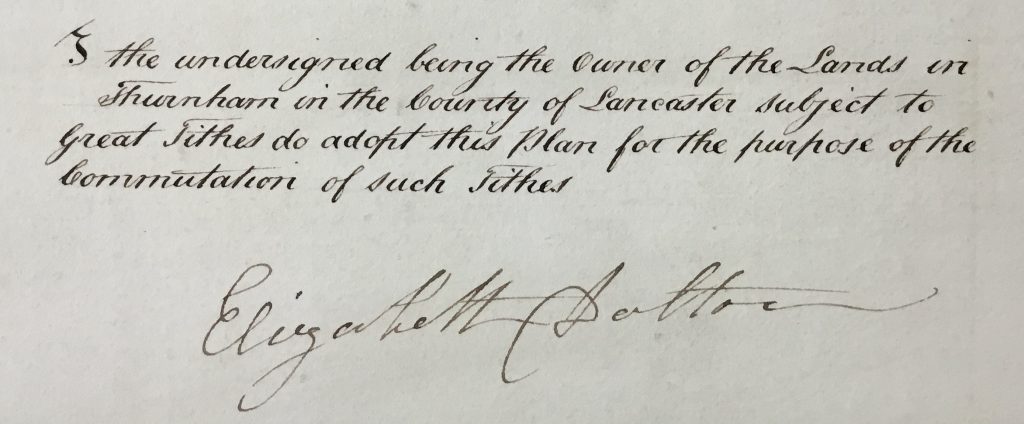 I the undersigned being the Owner of the Lands in
Thurnham in the County of Lancaster subject to
Great Tithes do adopt this Plan for the purpose of the
Commutation of such Tithes
Elizabeth Dalton